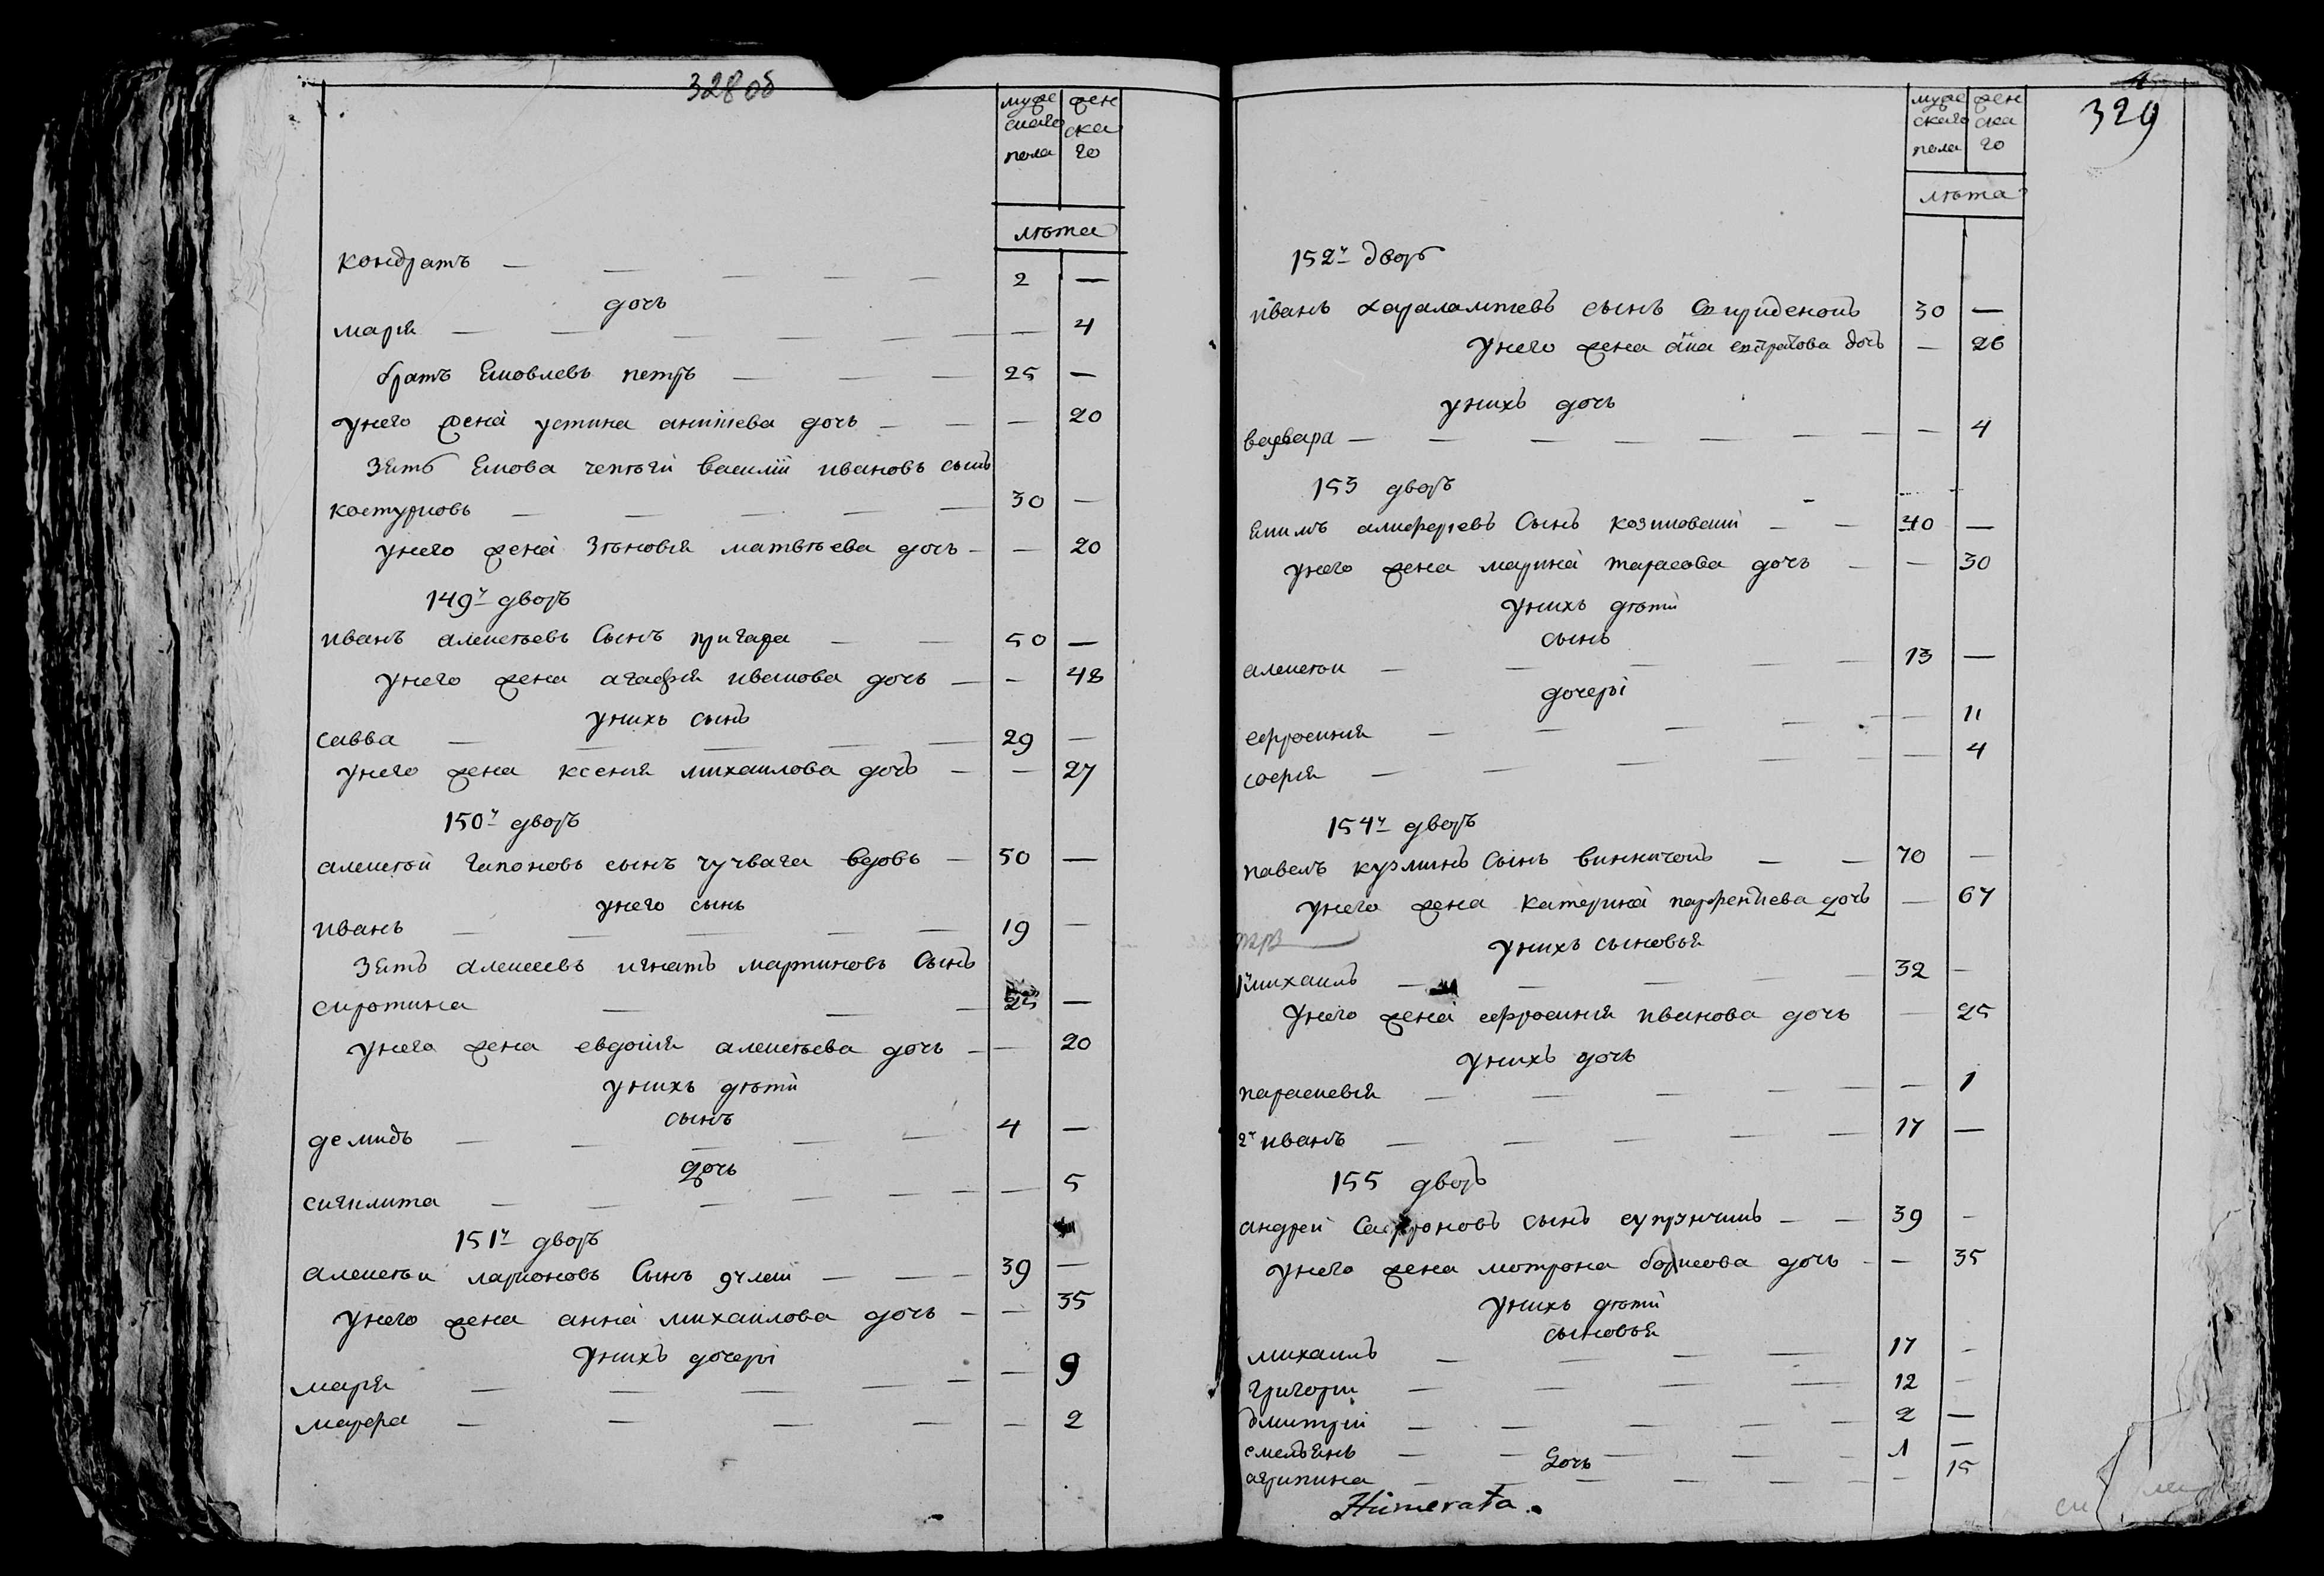 328 об
мужескаго пола женскаго
лѣта
кондратъ — — — — — 2 —
дочь
марія — — — — — — 4
братъ Яковлевъ петръ — — — 25 —
унего жена устина анишева дочь — — — 20
Зять Якова чепѣги василій ивановъ сынъ
костурковъ — — — — — 30 —
унего жена Зѣновія матвѣева дочь — — 20
149й дворъ
иванъ алексѣевъ Сынъ пригара — — 50 —
унего жена агафія иванова дочь — — 48
унихъ сынъ
савва — — — — — 29 —
унего жена ксенія михаилова дочь — — 27
150й дворъ
алексѣй гапоновъ сынъ чучвага вдовъ — 50 —
унего сынъ
иванъ — — — — — 19 —
Зять алексеевъ игнатъ мартиновъ Сынъ
сиротина — — — 25 —
унего жена евдокія алексѣева дочь — — 20
унихъ дѣти
сынъ
демидъ — — — — — 4 —
дочь
сигклита — — — — — — 5
151й дворъ
Алексѣи ларионовъ Сынъ — — — 39 —
унего жена анна михаилова дочь — — 35
унихъ дочери
марія — — — — — — 9
марфа — — — — — 2
4
329
мужескаго пола женскаго
лѣта
152й дворъ
иванъ харалампіевъ сынъ Спириденокъ 30 —
унего жена ана евстратова дочь — 26
унихъ дочь
варвара — — — — — — — — 4
153 дворъ
Якимъ алиферіевъ Сынъ козиковскій — — 40 —
унего жена марина тарасова дочь — — 30
унихъ дѣти
сынъ
алексѣи — — — — — 13 —
дочери
ефросинія — — — — — — 11
софія — — — — — — 4
154й дворъ
павелъ кузминъ Сынъ винничокъ — — 70 —
унего жена катерина парфентиева дочь — 67
унихъ сыновья
1й михаилъ — — — — — 32 —
унего жена ефросинія иванова дочь — 25
унихъ дочь
параскевія — — — — — — 1
2й иванъ — — — — — 17 —
155 дворъ
андрей Сафроновъ сынъ супрунчикъ — — 39 —
унего жена мотрона борисова дочь — — 35
унихъ дѣти
сыновья
михаилъ — — — — 17 —
григорій — — — — 12 —
дмитрій — — — — — 2 —
емельянъ — — — — — 1 —
дочь
агрипина — — — — — — 15
Humerata.